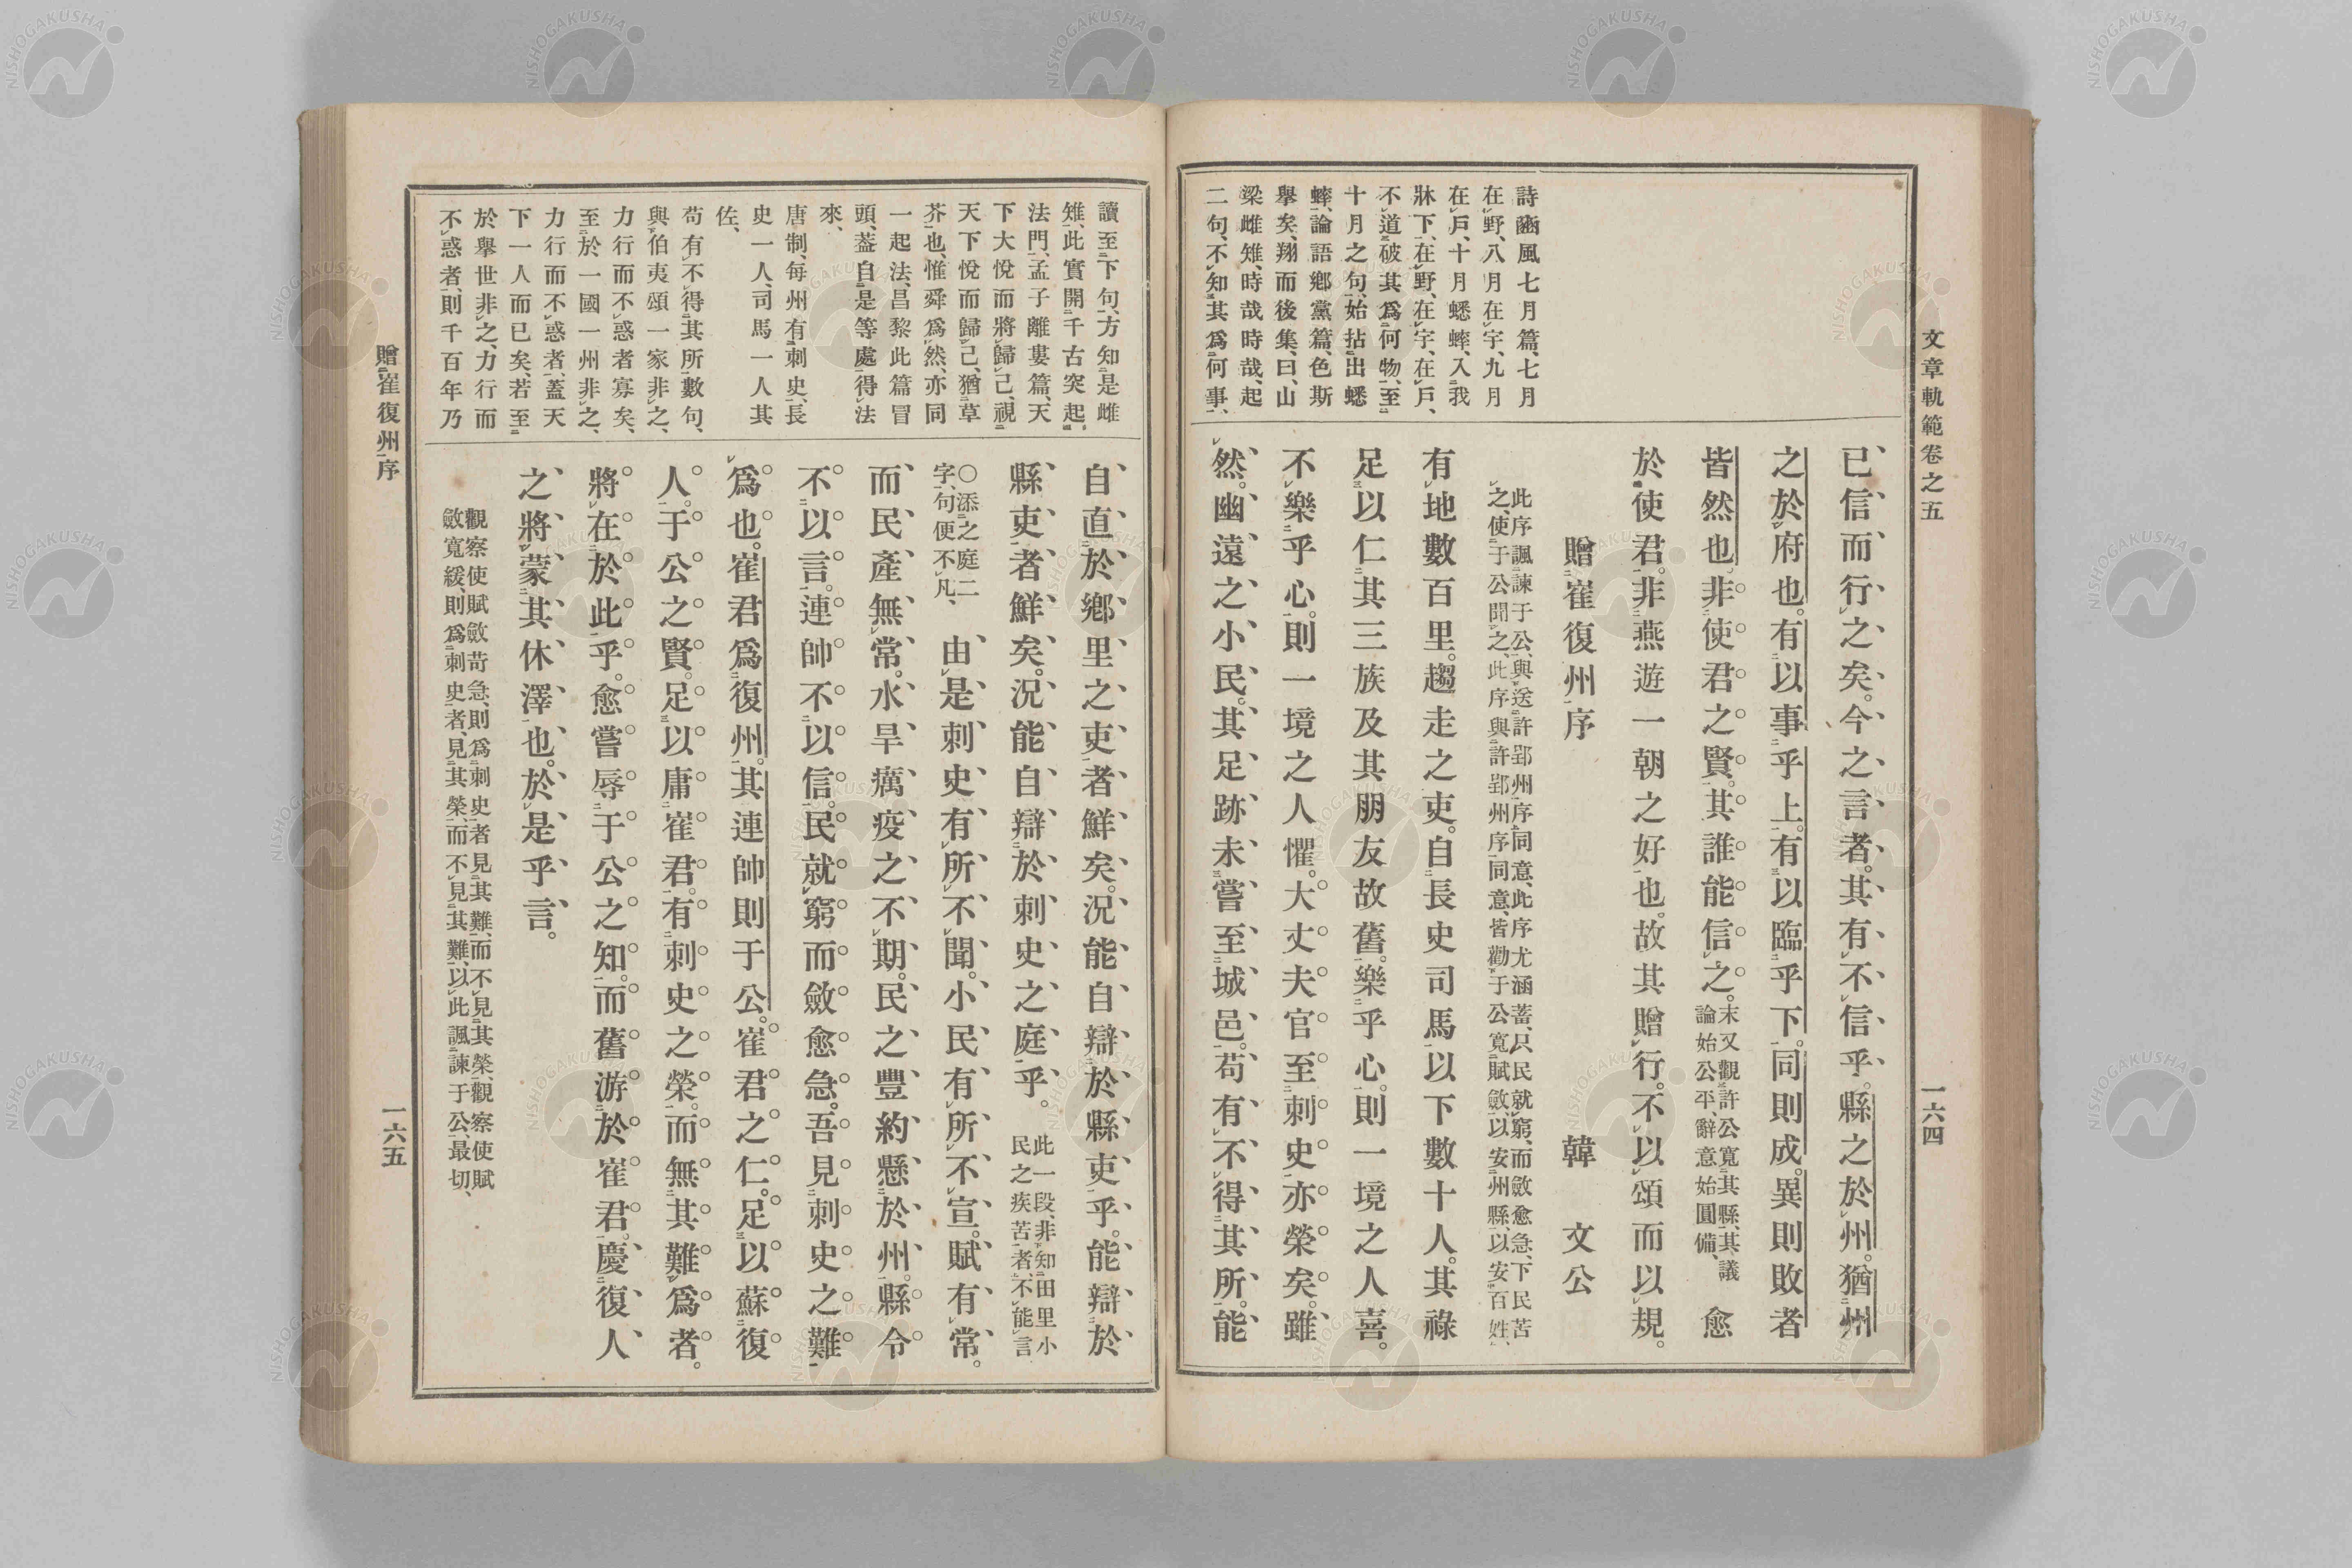 文章軌範卷之五
一六四
詩豳風七月篇、七月
在野、八月在宇、九月
在戶、十月蟋蟀、入我
牀下、在野、在宇、在戶、
不道破其爲何物、至
十月之句、始拈出蟋
蟀、論語鄉黨篇、色斯
擧矣、翔而後集、曰、山
梁雌雉、時哉時哉、起
二句、不知其爲何事、
已信而行之矣。今之言者。其有不信乎。縣之於州。猶州
之於府也。有以事乎上。有以臨乎下。同則成。異則敗者
皆然也。非使君之賢。其誰能信之。末又觀許公寬其縣、其議
論始公平、辭意始圓備、
愈
於使君。非燕遊一朝之好也。故其贈行。不以頌而以規。
贈崔復州序 韓文公
此序諷諫于公、與送許郢州序同意、此序尤涵蓄、只民就窮、而斂愈急、下民苦
之、使于公聞之、此序與許郢州序同意、皆勸于公寬賦斂、以安州縣、以安百姓、
有地數百里。趨走之吏。自長史司馬以下數十人。其祿
足以仁其三族及其朋友故舊。樂乎心。則一境之人喜。
不樂乎心。則一境之人懼。大丈夫官至刺史。亦榮矣。雖
然。幽遠之小民。其足跡未嘗至城邑。苟有不得其所。能
讀至下句、方知是雌
雉、此實開千古突起
法門、孟子離婁篇、天
下大悅而將歸己、視
天下悅而歸己、猶草
芥也、惟舜爲然、亦同
一起法、昌黎此篇冒
頭、葢自是等處得法
來、
唐制、每州有刺史、長
史一人、司馬一人其
佐、
苟有不得其所數句、
與伯夷頌一家非之、
力行而不惑者寡矣、
至於一國一州非之、
力行而不惑者、蓋天
下一人而已矣、若至
於擧世非之、力行而
不惑者、則千百年乃
自直於鄉里之吏者鮮矣。況能自辯於縣吏乎。能辯於
縣吏者鮮矣。況能自辯於刺史之庭乎。此一段、非知田里小
民之疾苦者、不能言
○添之庭二
字、句便不凡、
由是刺史有所不聞。小民有所不宣。賦有常。
而民產無常。水旱癘疫之不期。民之豐約懸於州。縣令
不以言。連帥不以信。民就窮而斂愈急。吾見刺史之難
爲也。崔君爲復州。其連帥則于公。崔君之仁。足以蘇復
人。于公之賢。足以庸崔君。有刺史之榮。而無其難爲者。
將在於此乎。愈嘗辱于公之知。而舊游於崔君。慶復人
之將蒙其休澤也。於是乎言。
觀察使賦斂苛急、則爲刺史者見其難、而不見其榮、觀察使賦
斂寬緩、則爲刺史者、見其榮、而不見其難、以此諷諫于公、最切、
贈崔復州序
一六五
NISHOGAKUSHA